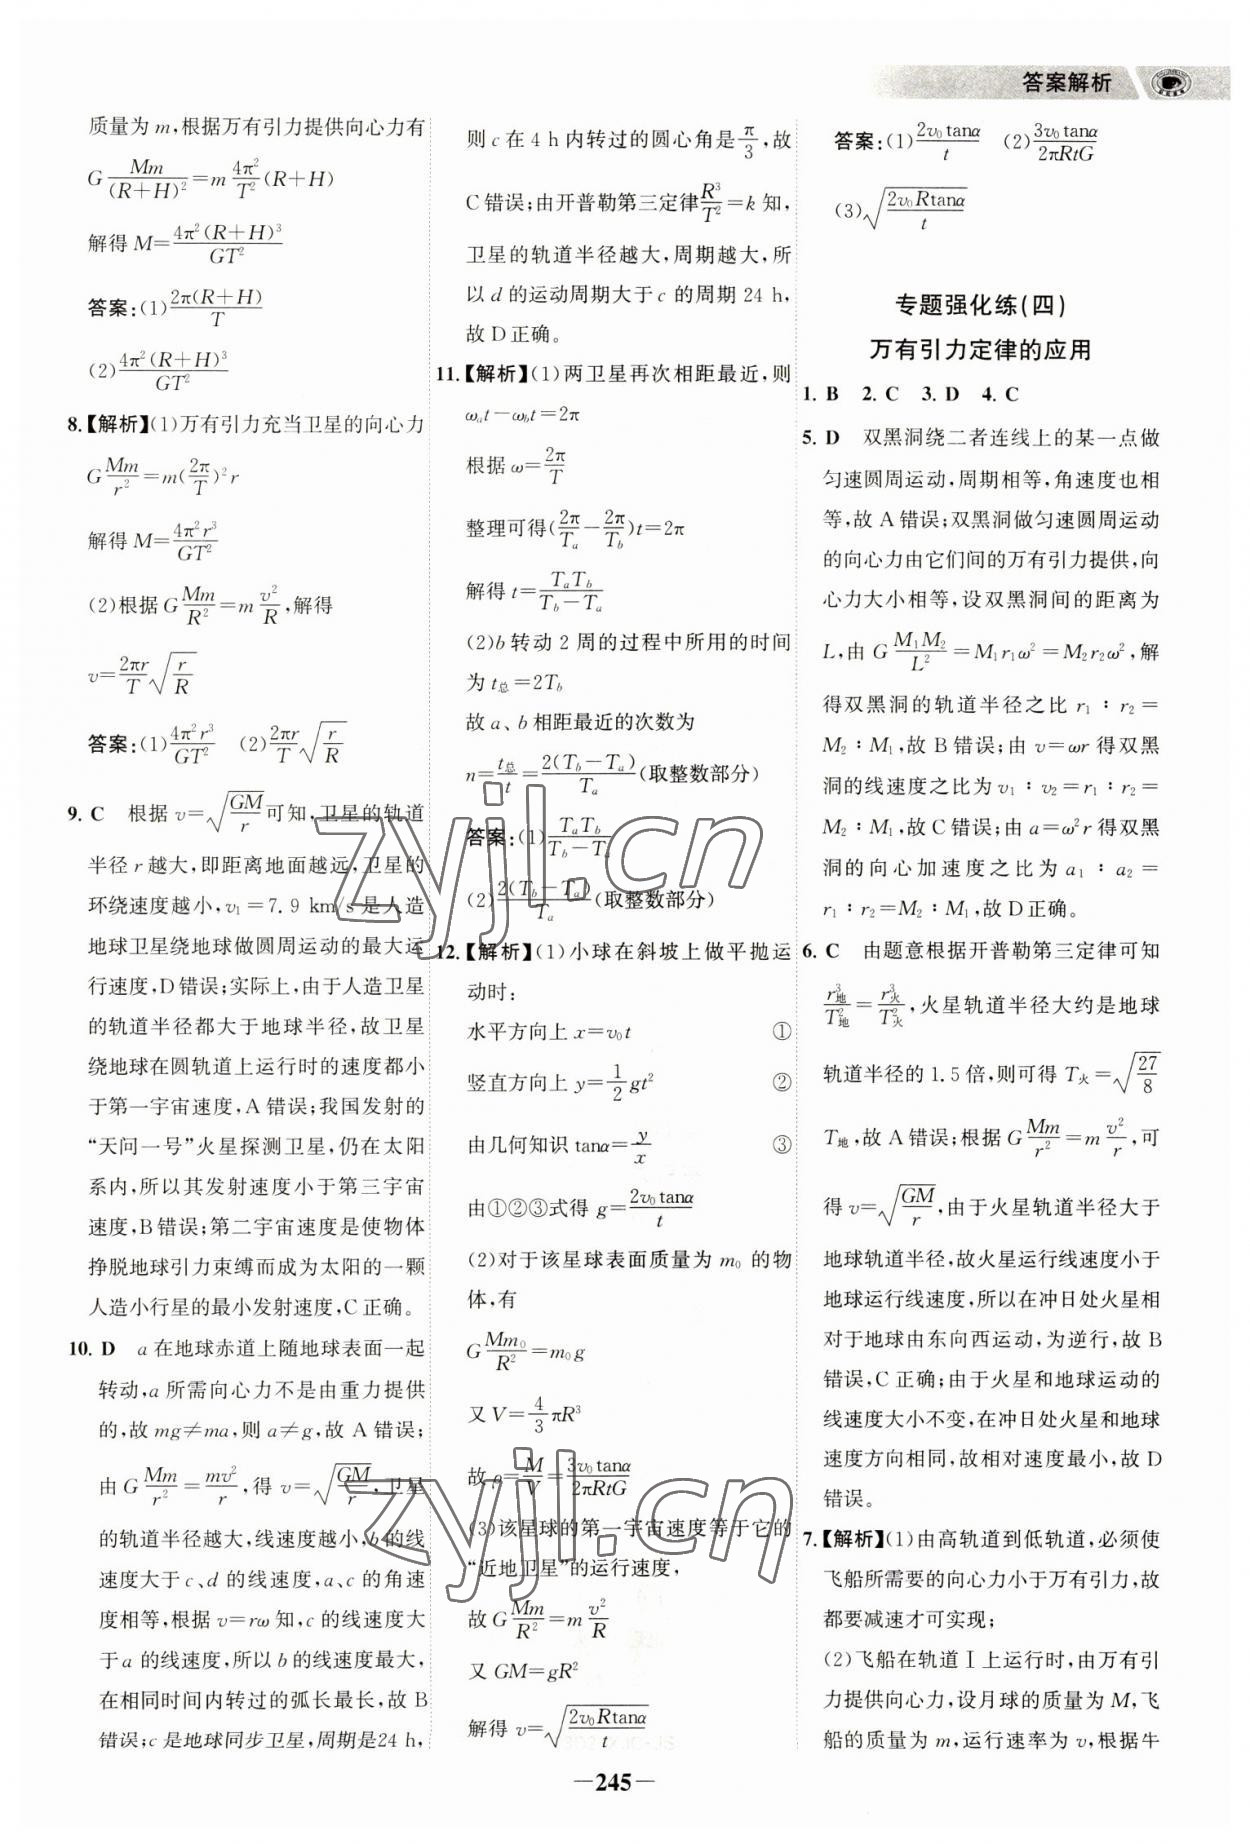 答案解析
质量为 m,根据万有引力提供向心力有
G\frac{Mm}{(R+H)^2}=m\frac{4π^2}{T^2}(R+H)
解得 M=\frac{4π^2(R+H)^3}{GT^2}
答案:(1)\frac{2π(R+H)}{T}
(2)\frac{4π^2(R+H)^3}{GT^2}
8.【解析】(1)万有引力充当卫星的向心力
G\frac{Mm}{r^2}=m(\frac{2π}{T})^2r
解得 M=\frac{4π^2r^3}{GT^2}
(2)根据 G\frac{Mm}{R^2}=m\frac{v^2}{R},解得
v=\frac{2πr}{T}\sqrt{\frac{r}{R}}
答案:(1)\frac{4π^2r^3}{GT^2} (2)\frac{2πr}{T}\sqrt{\frac{r}{R}}
9. C 根据 v=\sqrt{\frac{GM}{r}}可知,卫星的轨道
半径 r 越大,即距离地面越远,卫星的
环绕速度越小,v₁=7.9 km/s 是人造
地球卫星绕地球做圆周运动的最大运
行速度,D错误;实际上,由于人造卫星
的轨道半径都大于地球半径,故卫星
绕地球在圆轨道上运行时的速度都小
于第一宇宙速度,A 错误;我国发射的
“天问一号”火星探测卫星,仍在太阳
系内,所以其发射速度小于第三宇宙
速度,B错误;第二宇宙速度是使物体
挣脱地球引力束缚而成为太阳的一颗
人造小行星的最小发射速度,C 正确。
10. D a 在地球赤道上随地球表面一起
转动,a 所需向心力不是由重力提供
的,故 mg≠ma,则 a≠g,故 A 错误;
由 G\frac{Mm}{r^2}=\frac{mv^2}{r},得 v=\sqrt{\frac{GM}{r}},卫星
的轨道半径越大,线速度越小,b 的线
速度大于 c、d 的线速度,a、c 的角速
度相等,根据 v=rω 知,c 的线速度大
于a 的线速度,所以 b 的线速度最大,
在相同时间内转过的弧长最长,故 B
错误;c 是地球同步卫星,周期是24 h,
则 c 在 4 h 内转过的圆心角是\frac{π}{3},故
C错误;由开普勒第三定律\frac{R^3}{T^2}=k 知,
卫星的轨道半径越大,周期越大,所
以 d 的运动周期大于 c 的周期 24 h,
故 D 正确。
11.【解析】(1)两卫星再次相距最近,则
ωₐt-ω_bt=2π
根据 ω=\frac{2π}{T}
整理可得(\frac{2π}{T_a}-\frac{2π}{T_b})t=2π
解得 t=\frac{T_aT_b}{T_b-T_a}
(2)b 转动 2 周的过程中所用的时间
为 t_总=2T_b
故 a、b 相距最近的次数为
n=\frac{t_总}{t}=\frac{2(T_b-T_a)}{T_a}(取整数部分)
答案:(1)\frac{T_aT_b}{T_b-T_a}
(2)\frac{2(T_b-T_a)}{T_a}(取整数部分)
12.【解析】(1)小球在斜坡上做平抛运
动时:
水平方向上 x=v₀t ①
竖直方向上 y=\frac{1}{2}gt² ②
由几何知识 tanα=\frac{y}{x} ③
由①②③式得 g=\frac{2v_0tanα}{t}
(2)对于该星球表面质量为 m₀ 的物
体,有
G\frac{Mm_0}{R^2}=m₀g
又 V=\frac{4}{3}πR³
故 ρ=\frac{M}{V}=\frac{3v_0tanα}{2πRtG}
(3)该星球的第一宇宙速度等于它的
“近地卫星”的运行速度,
故 G\frac{Mm}{R^2}=m\frac{v^2}{R}
又 GM=gR²
解得 v=\sqrt{\frac{2v_0Rtanα}{t}}
答案:(1)\frac{2v_0tanα}{t} (2)\frac{3v_0tanα}{2πRtG}
(3)\sqrt{\frac{2v_0Rtanα}{t}}
专题强化练(四)
万有引力定律的应用
1. B 2. C 3. D 4. C
5. D 双黑洞绕二者连线上的某一点做
匀速圆周运动,周期相等,角速度也相
等,故 A 错误;双黑洞做匀速圆周运动
的向心力由它们间的万有引力提供,向
心力大小相等,设双黑洞间的距离为
L,由 G\frac{M_1M_2}{L^2}=M₁r₁ω²=M₂r₂ω²,解
得双黑洞的轨道半径之比 r₁∶r₂=
M₂∶M₁,故 B 错误;由 v=ωr 得双黑
洞的线速度之比为 v₁∶v₂=r₁∶r₂=
M₂∶M₁,故 C 错误;由 a=ω²r 得双黑
洞的向心加速度之比为 a₁∶a₂=
r₁∶r₂=M₂∶M₁,故 D 正确。
6. C 由题意根据开普勒第三定律可知
\frac{r_地^3}{T_地^2}=\frac{r_火^3}{T_火^2},火星轨道半径大约是地球
轨道半径的 1.5 倍,则可得 T_火=\sqrt{\frac{27}{8}}
T_地,故 A 错误;根据 G\frac{Mm}{r^2}=m\frac{v^2}{r},可
得 v=\sqrt{\frac{GM}{r}},由于火星轨道半径大于
地球轨道半径,故火星运行线速度小于
地球运行线速度,所以在冲日处火星相
对于地球由东向西运动,为逆行,故 B
错误,C 正确;由于火星和地球运动的
线速度大小不变,在冲日处火星和地球
速度方向相同,故相对速度最小,故 D
错误。
7.【解析】(1)由高轨道到低轨道,必须使
飞船所需要的向心力小于万有引力,故
都要减速才可实现;
(2)飞船在轨道Ⅰ上运行时,由万有引
力提供向心力,设月球的质量为 M,飞
船的质量为 m,运行速率为 v,根据牛
zyjl.cn
zyjl.cn
—245—